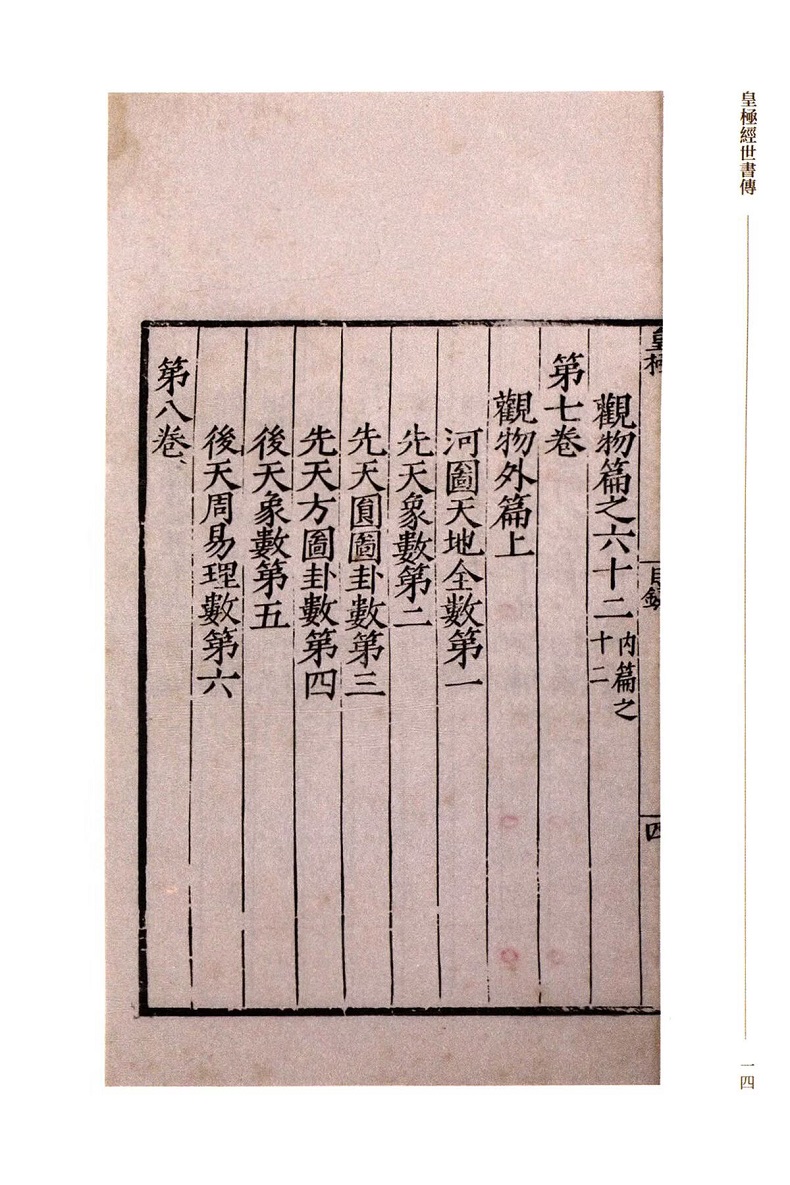 皇極經世書傳
一四
皇極
目錄
四
觀物篇之六十二 內篇之十二
第七卷
觀物外篇上
河圖天地全數第一
先天象數第二
先天圓圖卦數第三
先天方圖卦數第四
後天象數第五
後天周易理數第六
第八卷